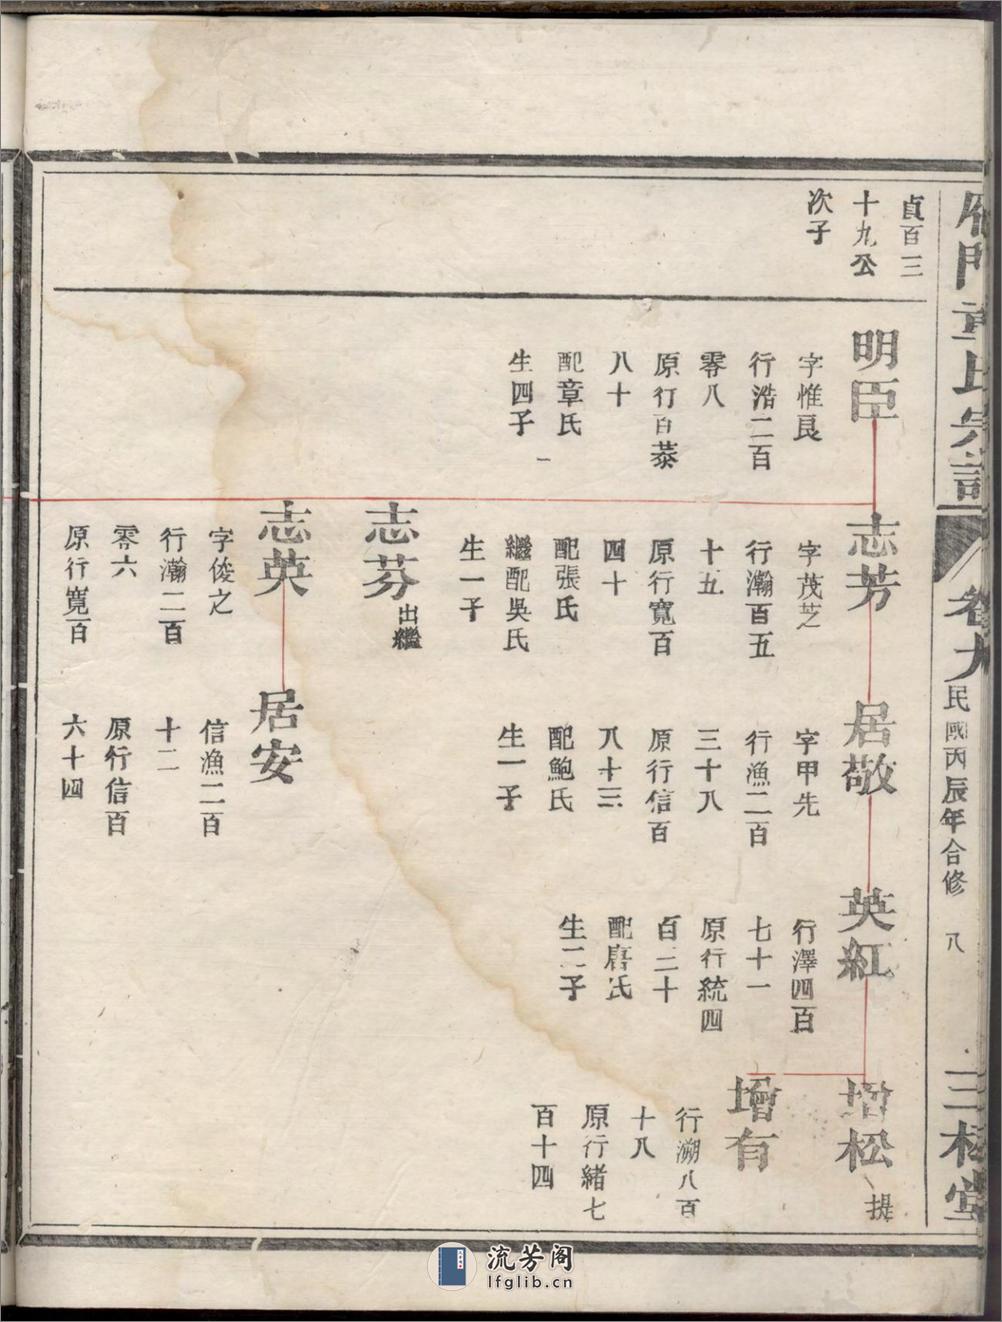 雁門童氏宗譜
卷九
民國丙辰年合修
八
三楿堂
貞百三
十九公
次子
明臣
字惟良
行浩二百
零八
原行百恭
八十
配章氏
生四子
志芳
字茂芝
行瀚百五
十五
原行寬百
四十
配張氏
繼配吳氏
生一子
志芬
出繼
志英
字俊之
行瀚二百
零六
原行寬百
居敬
字甲先
行漁二百
三十八
原行信百
八十三
配鮑氏
生一子
居安
信漁二百
十二
原行信百
六十四
英紅
行澤四百
七十一
原行統四
百二十
配唐氏
生二子
增松
提
增有
行溯八百
十八
原行緒七
百十四
流芳阁
lfglib.cn